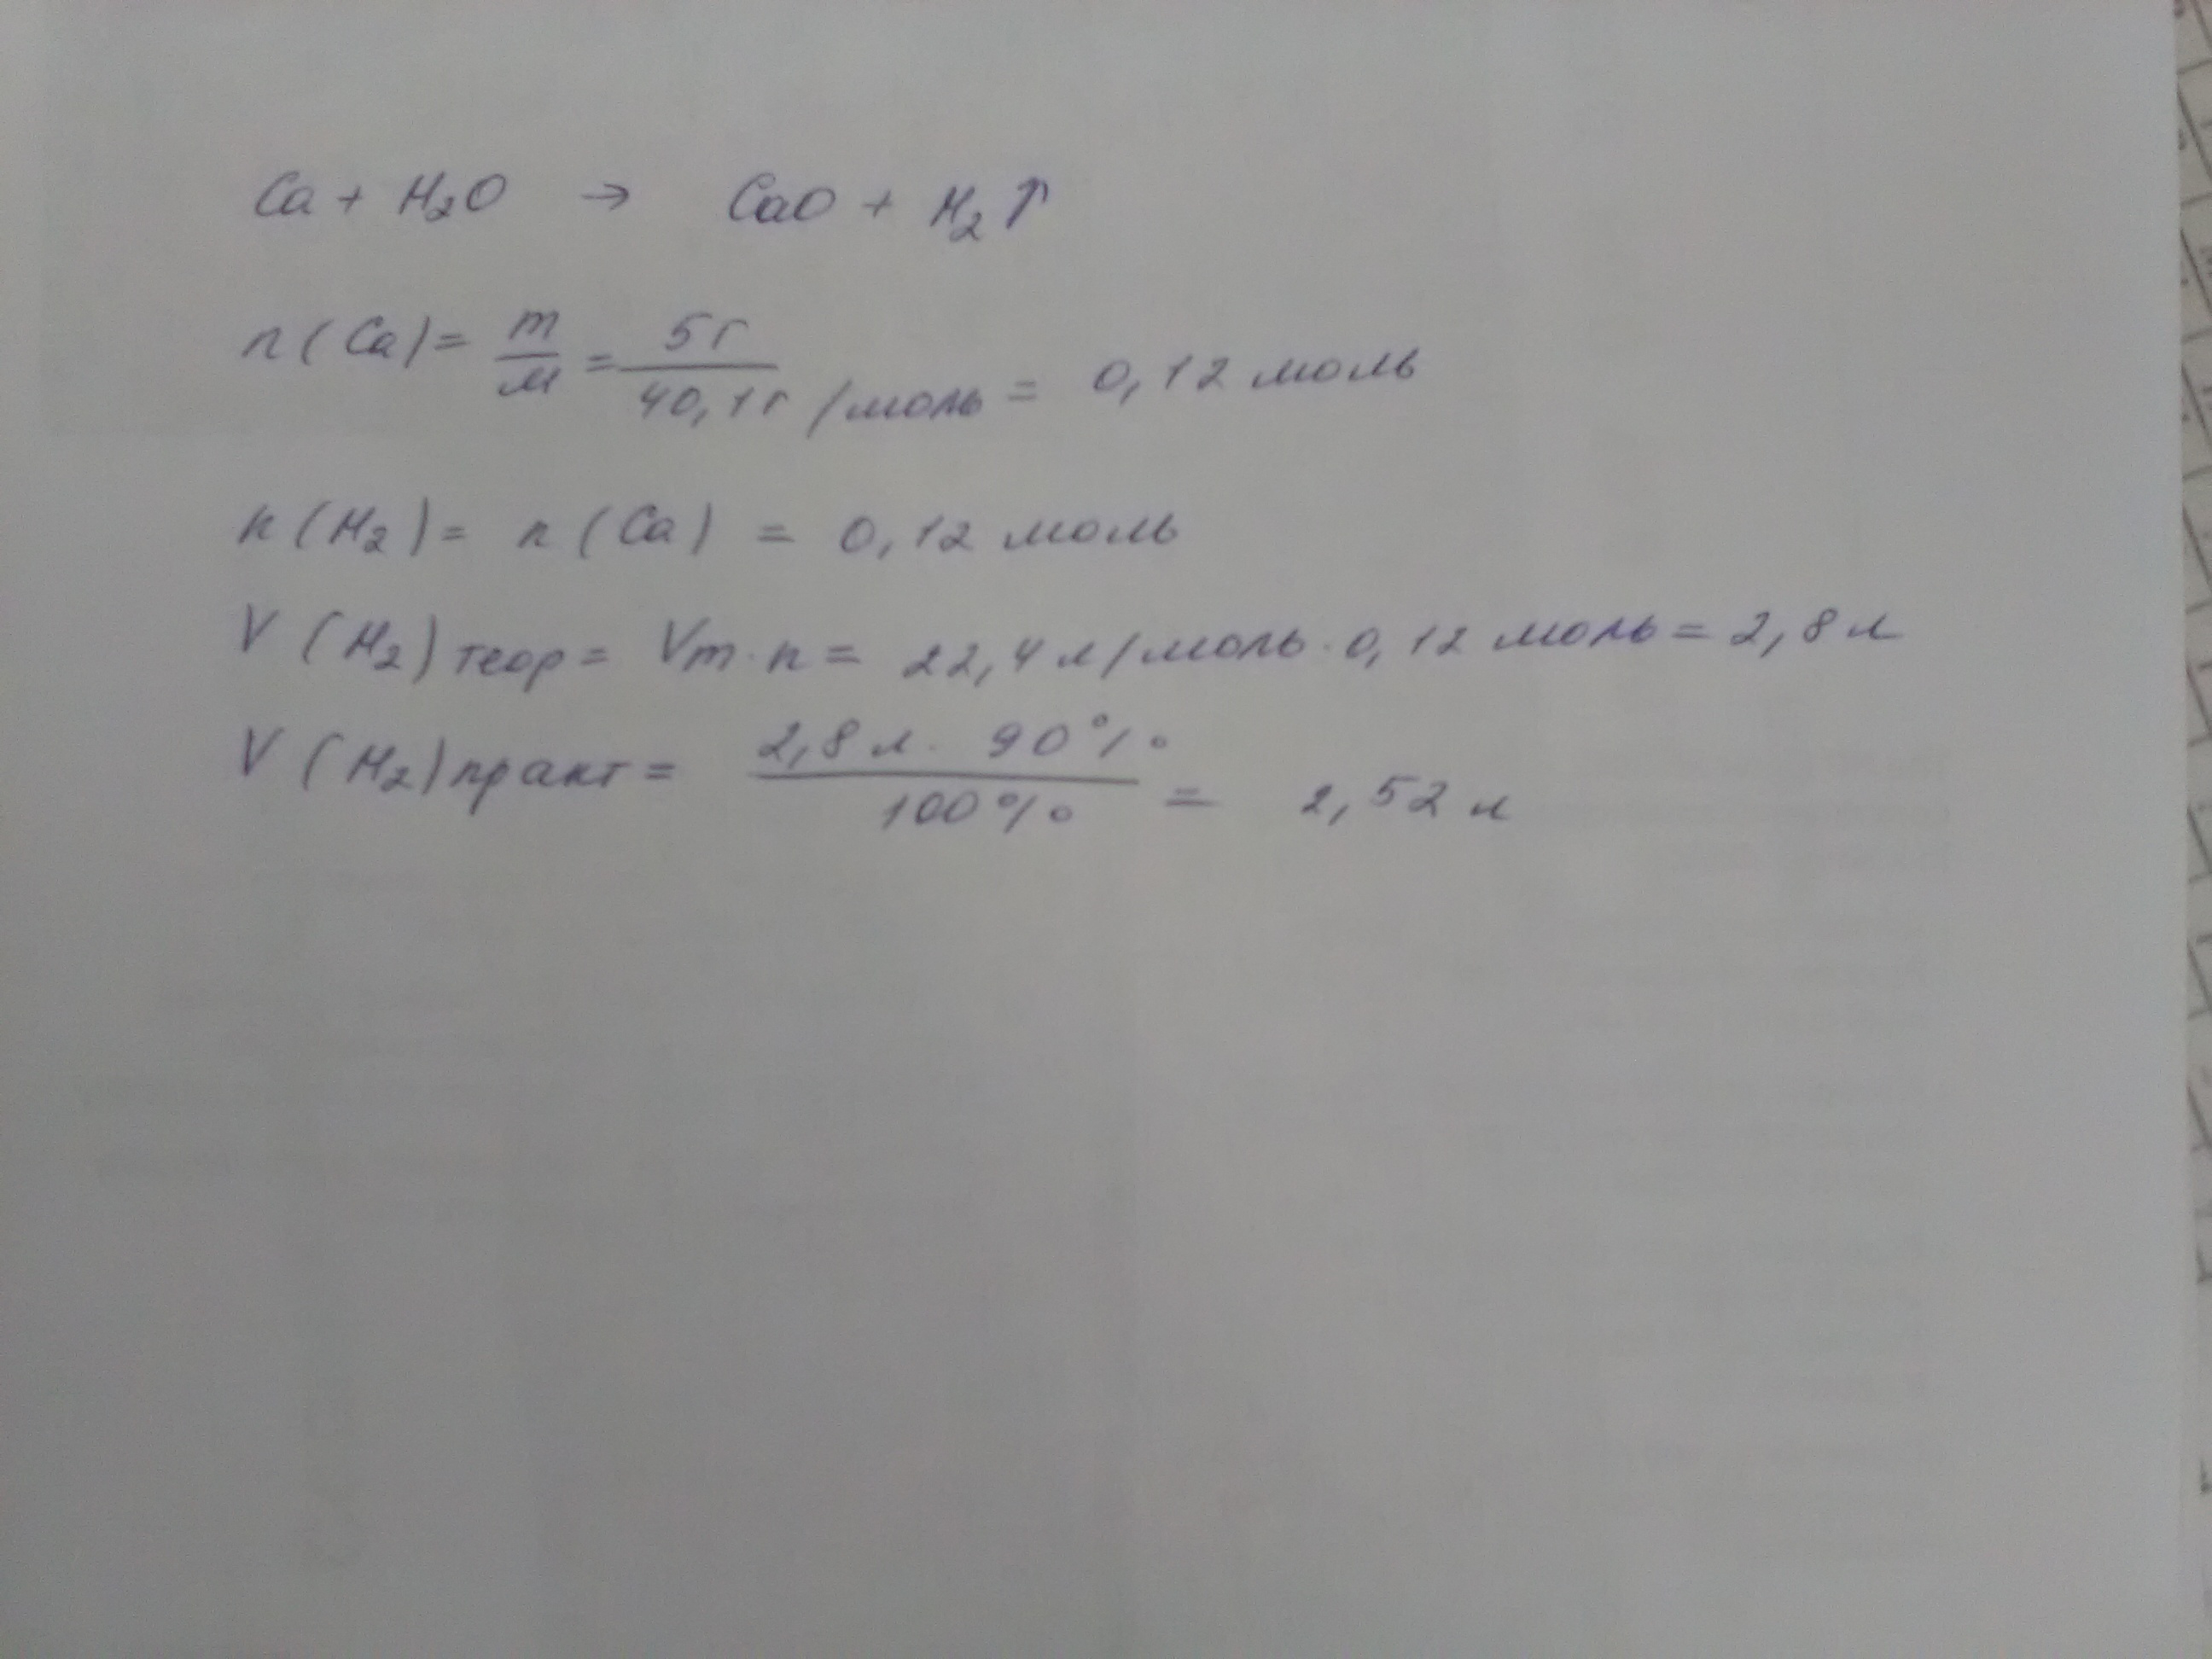 Ca + H₂O → CaO + H₂↑
n(Ca) = m/M = 5 г / 40,1 г/моль = 0,12 моль
n(H₂) = n(Ca) = 0,12 моль
V(H₂) теор = Vm · n = 22,4 л/моль · 0,12 моль = 2,8 л
V(H₂) практ = 2,8 л · 90% / 100% = 2,52 л